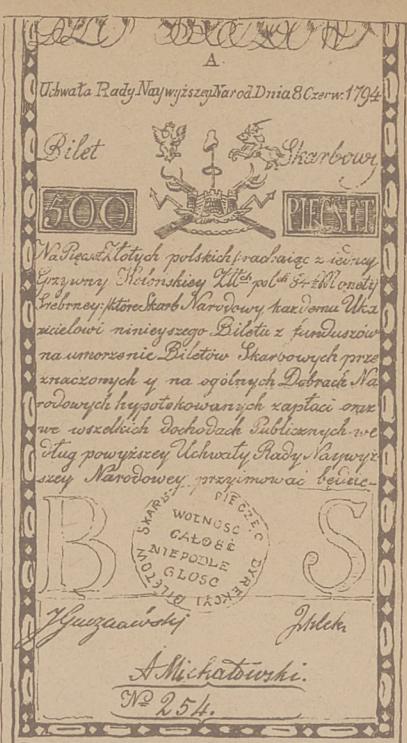 A.
Uchwała Rady Naywyższey Narod. Dnia 8 Czerw: 1794
Bilet Skarbowy
500 PIĘCSET
Na Pięcset Złotych polskich, rachuiąc z iedney
Grzywny Kolońskiey Złtch pol:ch 84½ Monety
Srebrney: które Skarb Narodowy każdemu Uka
zicielowi ninieyszego Biletu z funduszów
na umorzenie Biletów Skarbowych prze
znaczonych y na ogólnych Dobrach Na
rodowych hypotekowanych zapłaci oraz
we wszelkich dochodach Publicznych we
dług powyższey Uchwały Rady Naywyż
szey Narodowey przyimować będzie-
B S
PIECZĘC DYREKCYI BILETOW SKARB:
WOLNOSC
CAŁOSĆ
NIEPODLE
GLOSC
A Michałowski.
No 254.